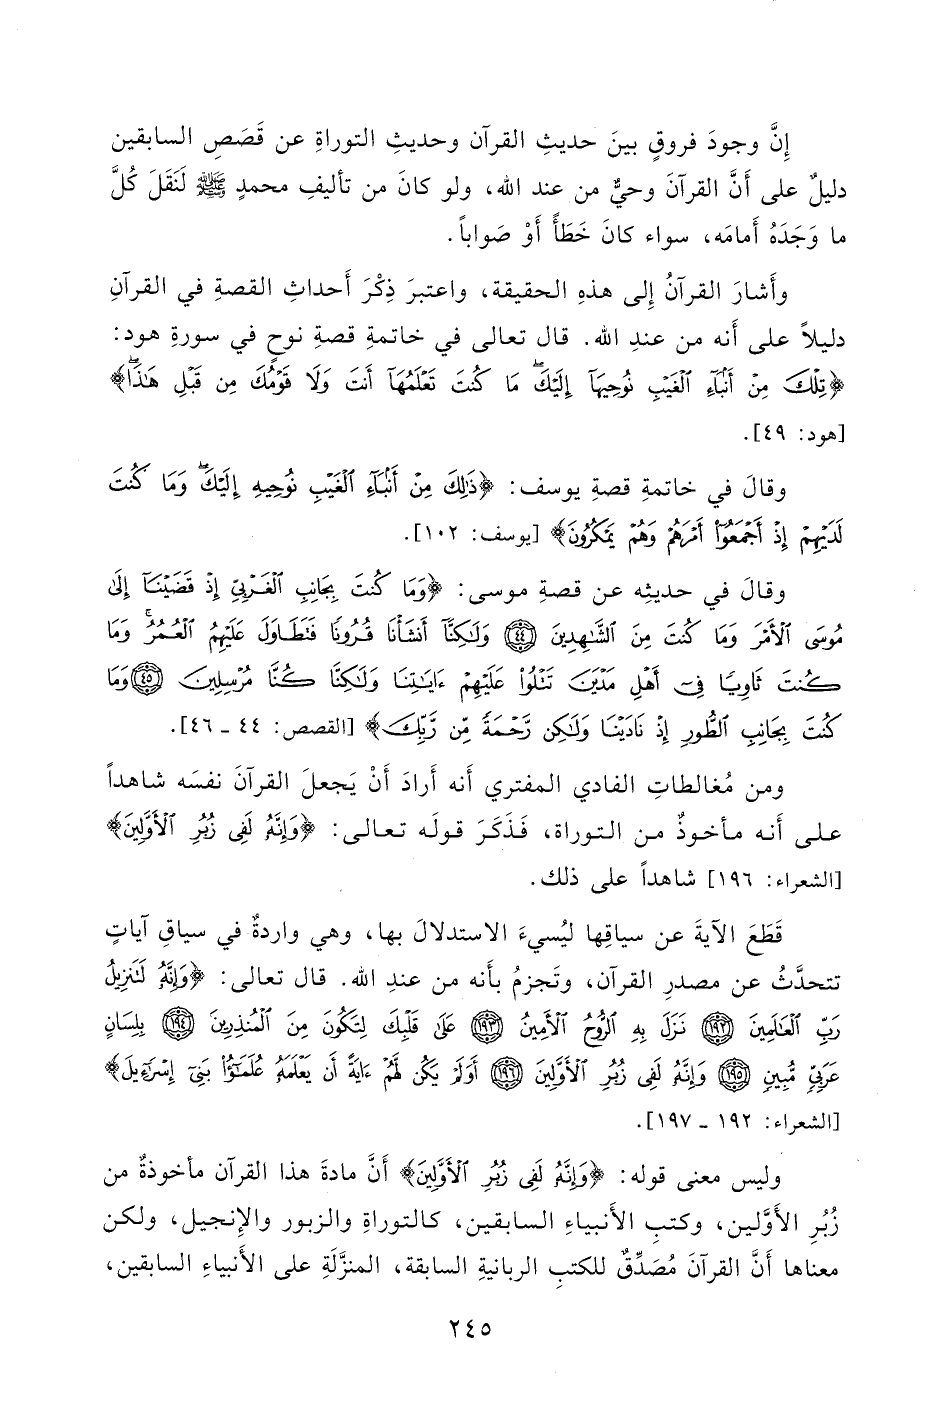 إِنَّ وجودَ فروقٍ بينَ حديثِ القرآن وحديثِ التوراةِ عن قَصَصِ السابقين
دليلٌ على أَنَّ القرآنَ وحيٌّ من عند الله، ولو كانَ من تأليفِ محمدٍ ﷺ لَنَقَلَ كُلَّ
ما وَجَدَهُ أَمامَه، سواء كانَ خَطَأً أَوْ صَواباً.
وأَشارَ القرآنُ إِلى هذهِ الحقيقة، واعتبرَ ذِكْرَ أَحداثِ القصةِ في القرآنِ
دليلاً على أَنه من عندِ الله. قال تعالى في خاتمةِ قصةِ نوحٍ في سورةِ هود:
﴿تِلْكَ مِنْ أَنۢبَآءِ ٱلْغَيْبِ نُوحِيهَآ إِلَيْكَ ۖ مَا كُنتَ تَعْلَمُهَآ أَنتَ وَلَا قَوْمُكَ مِن قَبْلِ هَـٰذَا ۖ﴾
[هود: ٤٩].
وقالَ في خاتمةِ قصةِ يوسف: ﴿ذَٰلِكَ مِنْ أَنۢبَآءِ ٱلْغَيْبِ نُوحِيهِ إِلَيْكَ ۖ وَمَا كُنتَ
لَدَيْهِمْ إِذْ أَجْمَعُوٓا۟ أَمْرَهُمْ وَهُمْ يَمْكُرُونَ﴾ [يوسف: ١٠٢].
وقالَ في حديثِه عن قصةِ موسى: ﴿وَمَا كُنتَ بِجَانِبِ ٱلْغَرْبِيِّ إِذْ قَضَيْنَآ إِلَىٰ
مُوسَى ٱلْأَمْرَ وَمَا كُنتَ مِنَ ٱلشَّـٰهِدِينَ ﴿٤٤﴾ وَلَـٰكِنَّآ أَنشَأْنَا قُرُونًا فَتَطَاوَلَ عَلَيْهِمُ ٱلْعُمُرُ ۚ وَمَا
كُنتَ ثَاوِيًا فِىٓ أَهْلِ مَدْيَنَ تَتْلُوا۟ عَلَيْهِمْ ءَايَـٰتِنَا وَلَـٰكِنَّا كُنَّا مُرْسِلِينَ ﴿٤٥﴾ وَمَا
كُنتَ بِجَانِبِ ٱلطُّورِ إِذْ نَادَيْنَا وَلَـٰكِن رَّحْمَةً مِّن رَّبِّكَ﴾ [القصص: ٤٤ ـ ٤٦].
ومن مُغالطاتِ الفادي المفتري أَنه أَرادَ أَنْ يَجعلَ القرآنَ نفسَه شاهداً
على أَنه مأخوذٌ من التوراة، فَذَكَرَ قولَه تعالى: ﴿وَإِنَّهُۥ لَفِى زُبُرِ ٱلْأَوَّلِينَ﴾
[الشعراء: ١٩٦] شاهداً على ذلك.
قَطَعَ الآيةَ عن سياقِها ليُسيءَ الاستدلالَ بها، وهي واردةٌ في سياقِ آياتٍ
تتحدَّثُ عن مصدرِ القرآن، وتَجزمُ بأَنه من عندِ الله. قال تعالى: ﴿وَإِنَّهُۥ لَتَنزِيلُ
رَبِّ ٱلْعَـٰلَمِينَ ﴿١٩٢﴾ نَزَلَ بِهِ ٱلرُّوحُ ٱلْأَمِينُ ﴿١٩٣﴾ عَلَىٰ قَلْبِكَ لِتَكُونَ مِنَ ٱلْمُنذِرِينَ ﴿١٩٤﴾ بِلِسَانٍ
عَرَبِيٍّ مُّبِينٍ ﴿١٩٥﴾ وَإِنَّهُۥ لَفِى زُبُرِ ٱلْأَوَّلِينَ ﴿١٩٦﴾ أَوَلَمْ يَكُن لَّهُمْ ءَايَةً أَن يَعْلَمَهُۥ عُلَمَـٰٓؤُا۟ بَنِىٓ إِسْرَٰٓءِيلَ﴾
[الشعراء: ١٩٢ ـ ١٩٧].
وليس معنى قوله: ﴿وَإِنَّهُۥ لَفِى زُبُرِ ٱلْأَوَّلِينَ﴾ أَنَّ مادةَ هذا القرآن مأخوذةٌ من
زُبُرِ الأَوَّلين، وكتبِ الأَنبياءِ السابقين، كالتوراةِ والزبور والإِنجيل، ولكن
معناها أَنَّ القرآنَ مُصَدِّقٌ للكتبِ الربانيةِ السابقة، المنزَّلَةِ على الأَنبياءِ السابقين،
٢٤٥